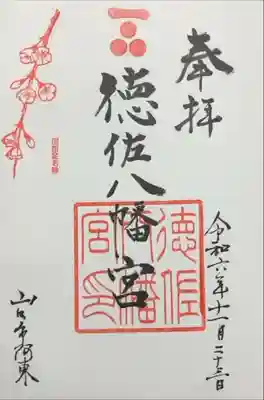 奉拝
徳佐八幡宮
徳佐八幡宮印
令和六年十一月二十三日
山口市阿東